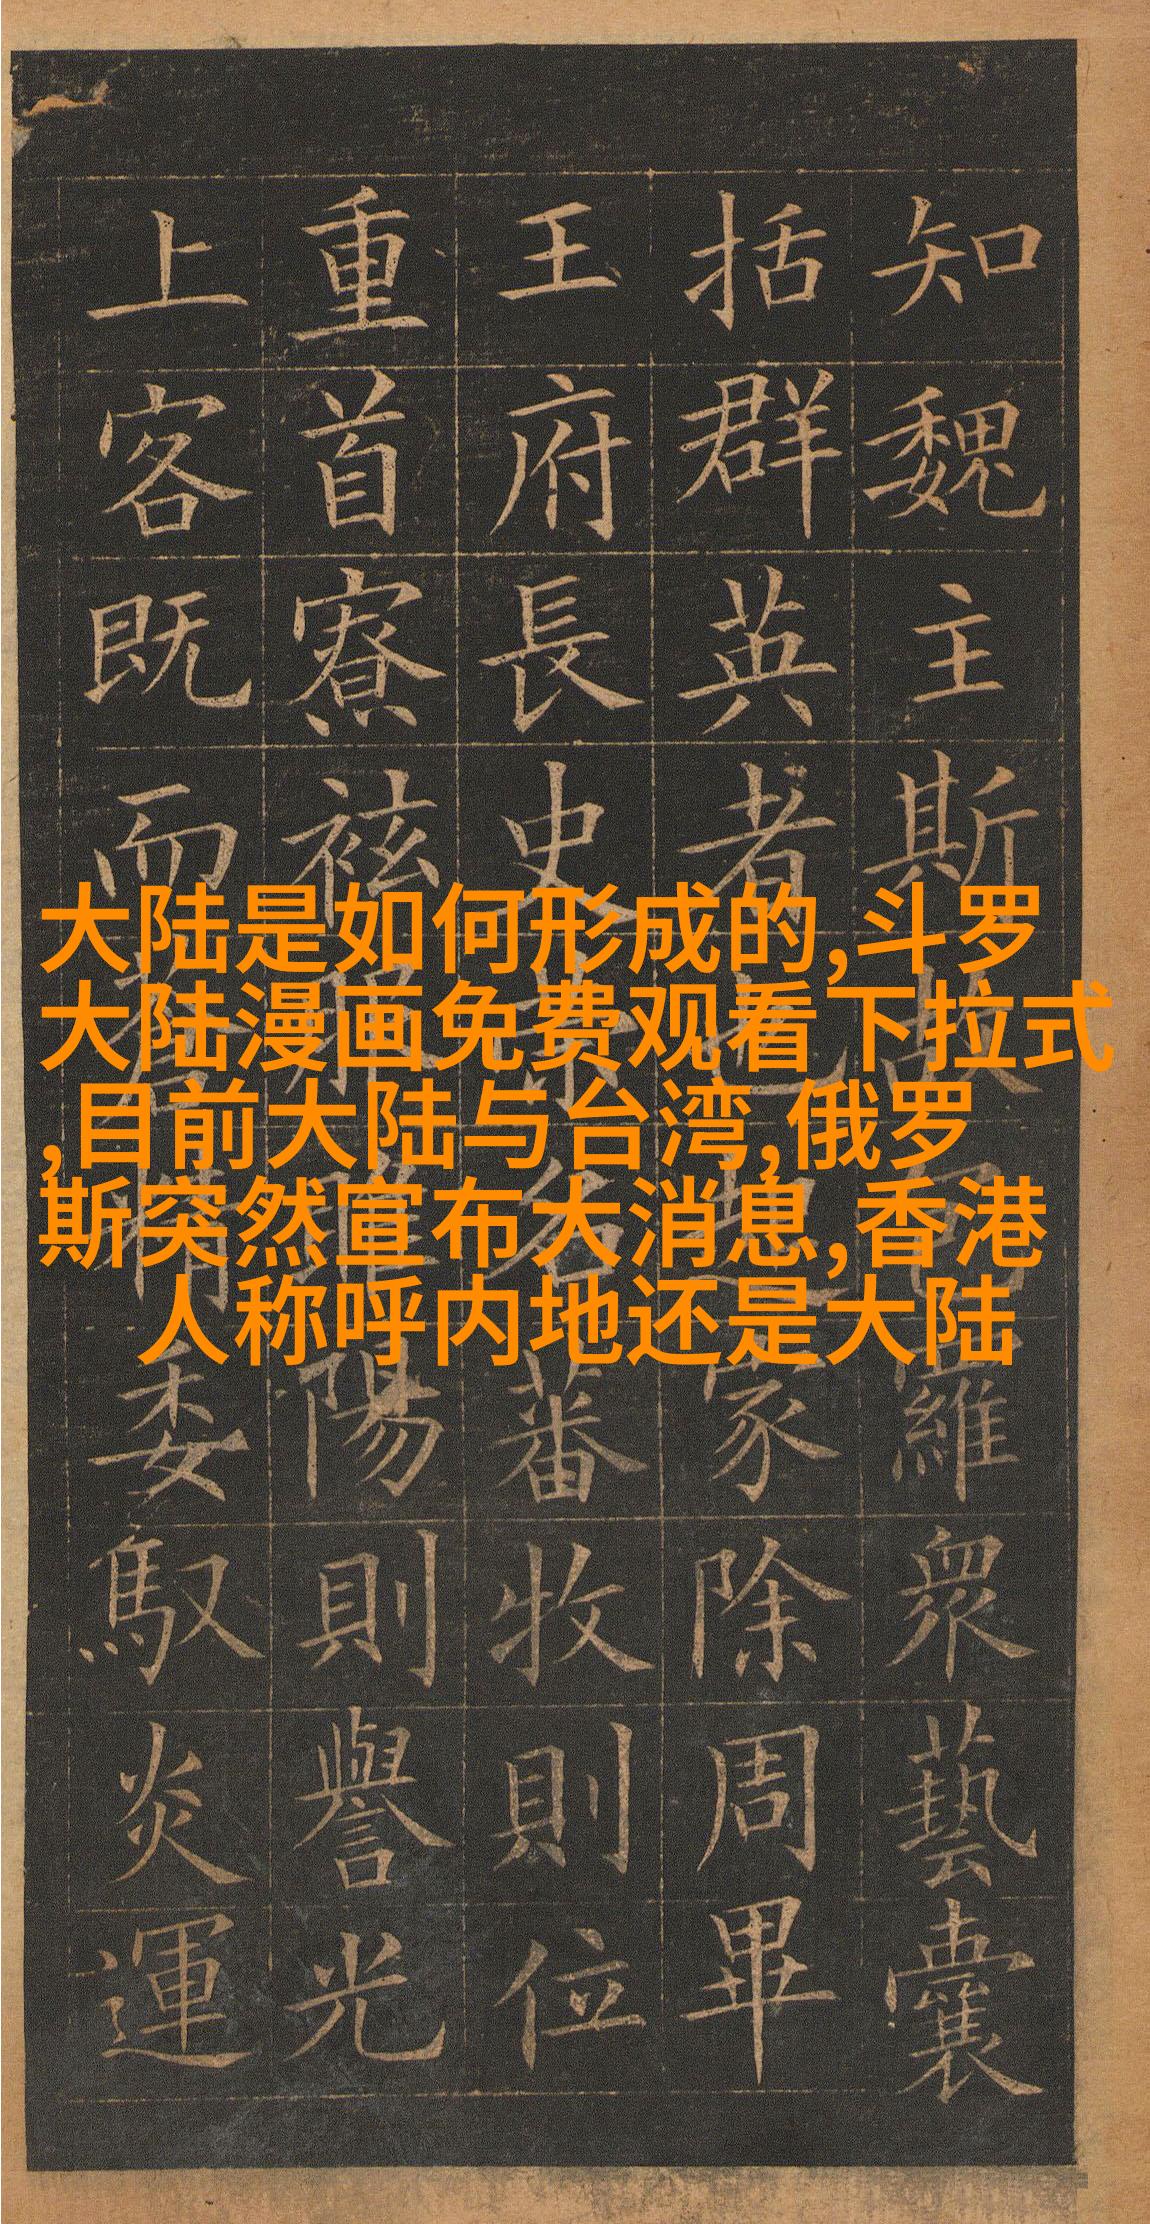 知魏主斯羅衆藝囊
括群英者也起家除周畢
王府長史名蕃牧則位
重首寮袨陽則譽光
上客既而精委馭炎運
大陆是如何形成的,斗罗
大陆漫画免费观看下拉式
,目前大陆与台湾,俄罗
斯突然宣布大消息,香港
人称呼内地还是大陆